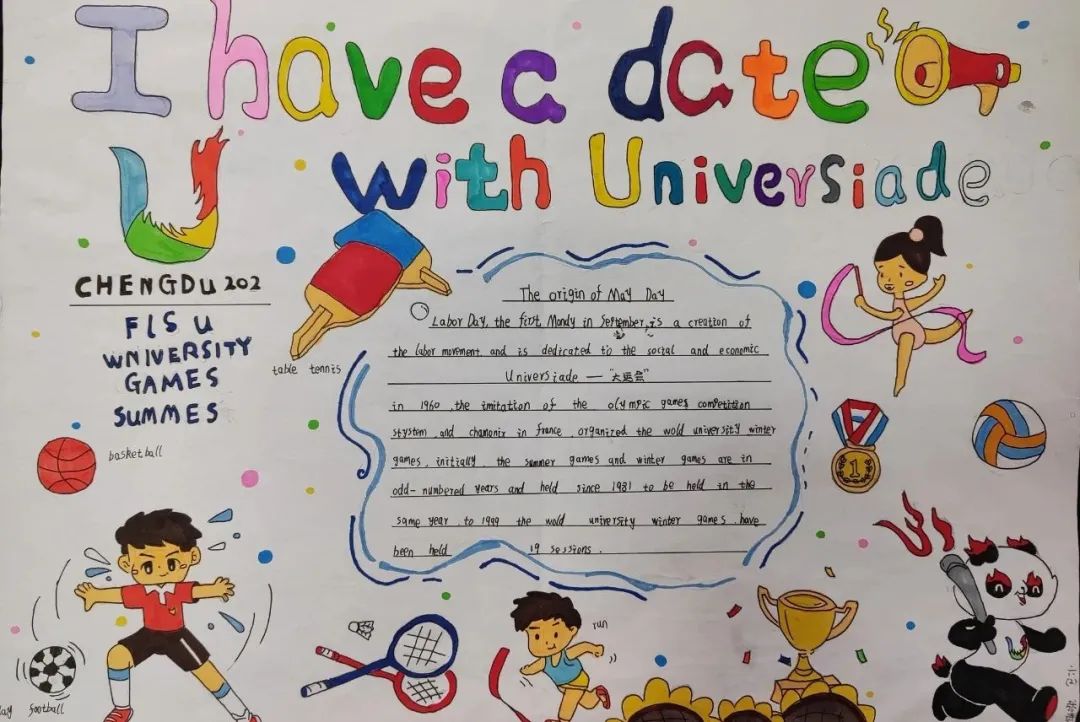 I have a date
with Universiade
CHENGDU 202
FISU
WNIVERSITY
GAMES
SUMMES
table tennis
basketball
The origin of May Day
Labor Day, the first Mondy in September, is a creation of
the labor movement and is dedicated to the social and economic
Universiade — "大运会"
in 1960, the imitation of the olympic games competition
stystem, and chamonix in france, organized the wold university winter
games, initially, the summer games and winter games are in
odd-numbered years and held since 1981 to be held in the
same year. to 1999 the wold university winter games have
been held 19 sessions.
1
run
football